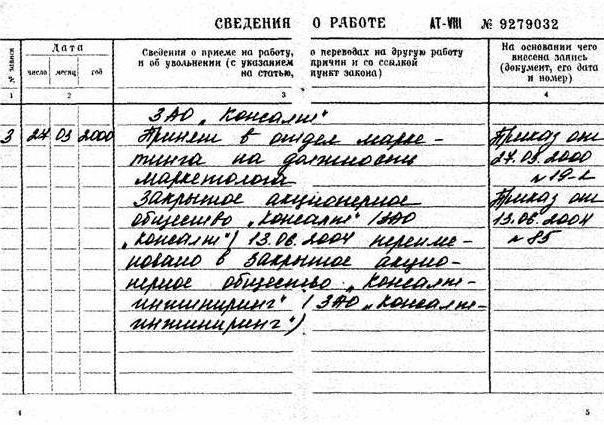 СВЕДЕНИЯ О РАБОТЕ АТ-VIII № 9279032
№ записи
Дата
число месяц год
Сведения о приеме на работу, о переводах на другую работу
и об увольнении (с указанием причин и со ссылкой
на статью, пункт закона)
На основании чего
внесена запись
(документ, его дата
и номер)
1 2 3 4
ЗАО „Консалт"
3 27 03 2000 Принят в отдел марке- Приказ от
тинга на должность 27.03.2000
маркетолога №19-к
Закрытое акционерное Приказ от
общество „Консалт" (ЗАО 13.06.2004
„Консалт") 13.06.2004 переиме- №85
новано в Закрытое акцио-
нерное общество „Консалт-
инжиниринг" (ЗАО „Консалт-
инжиниринг")
4 5